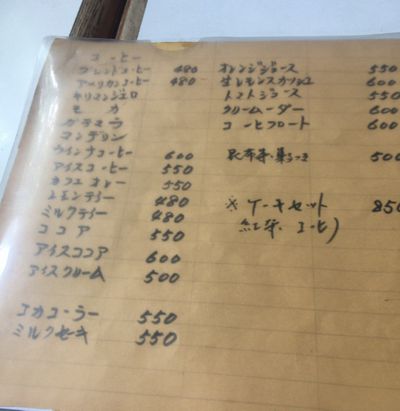 コーヒー
ブレンドコーヒー 480
アメリカンコーヒー 480
キリマンジェロ
モカ
ガテマラ
マンデリン
ウインナコーヒー 600
アイスコーヒー 550
カフェオレー 550
レモンティー 480
ミルクティー 480
ココア 550
アイスココア 600
アイスクリーム 500
コカコーラー 550
ミルクセーキ 550
オレンジジュース 550
生レモンスカッシュ 600
トマトジュース 550
クリームソーダー 600
コーヒフロート 600
昆布茶・菓子つき 500
※ケーキセット 850
紅茶・コーヒ)